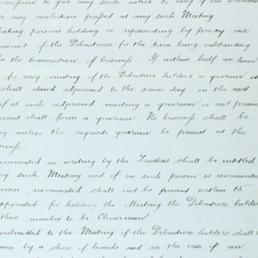 omission to give any such notice to any of the
any resolution passed at any such Meeting
persons holding or representing by proxy one
amount of the Debentures for the time being outstanding
for the transaction of business. If within half an hour
for any meeting of the Debenture holders a quorum is
shall stand adjourned to the same day in the next
if at such adjourned meeting a quorum is not present
shall form a quorum. No business shall be
unless the requisite quorum be present at the
business.
nominated in writing by the Trustees shall be entitled
such Meeting and if no such person is nominated
person nominated shall not be present within 15
appointed for holding the Meeting the Debenture holders
their number to be Chairman.
submitted to the Meeting of the Debenture holders shall
by a show of hands and in the case of an